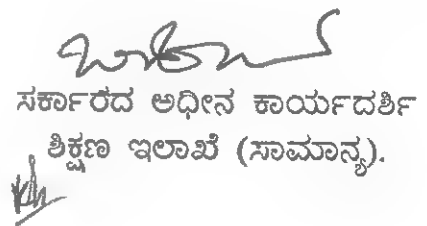 ಸರ್ಕಾರದ ಅಧೀನ ಕಾರ್ಯದರ್ಶಿ
ಶಿಕ್ಷಣ ಇಲಾಖೆ (ಸಾಮಾನ್ಯ).